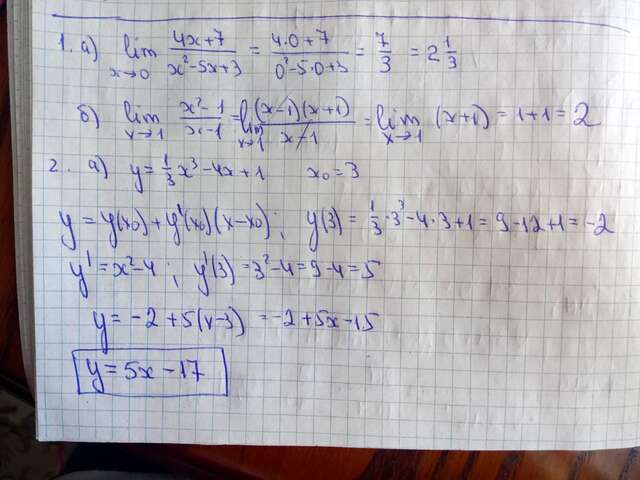 1. а) lim x→0 (4x+7)/(x²-5x+3) = (4·0+7)/(0²-5·0+3) = 7/3 = 2 1/3
б) lim x→1 (x²-1)/(x-1) = lim x→1 ((x-1)(x+1))/(x-1) = lim x→1 (x+1) = 1+1 = 2
2. а) y = 1/3 x³ - 4x + 1 x₀ = 3
y = y(x₀) + y'(x₀)(x-x₀); y(3) = 1/3 · 3³ - 4·3 + 1 = 9 - 12 + 1 = -2
y' = x² - 4; y'(3) = 3² - 4 = 9 - 4 = 5
y = -2 + 5(x-3) = -2 + 5x - 15
y = 5x - 17